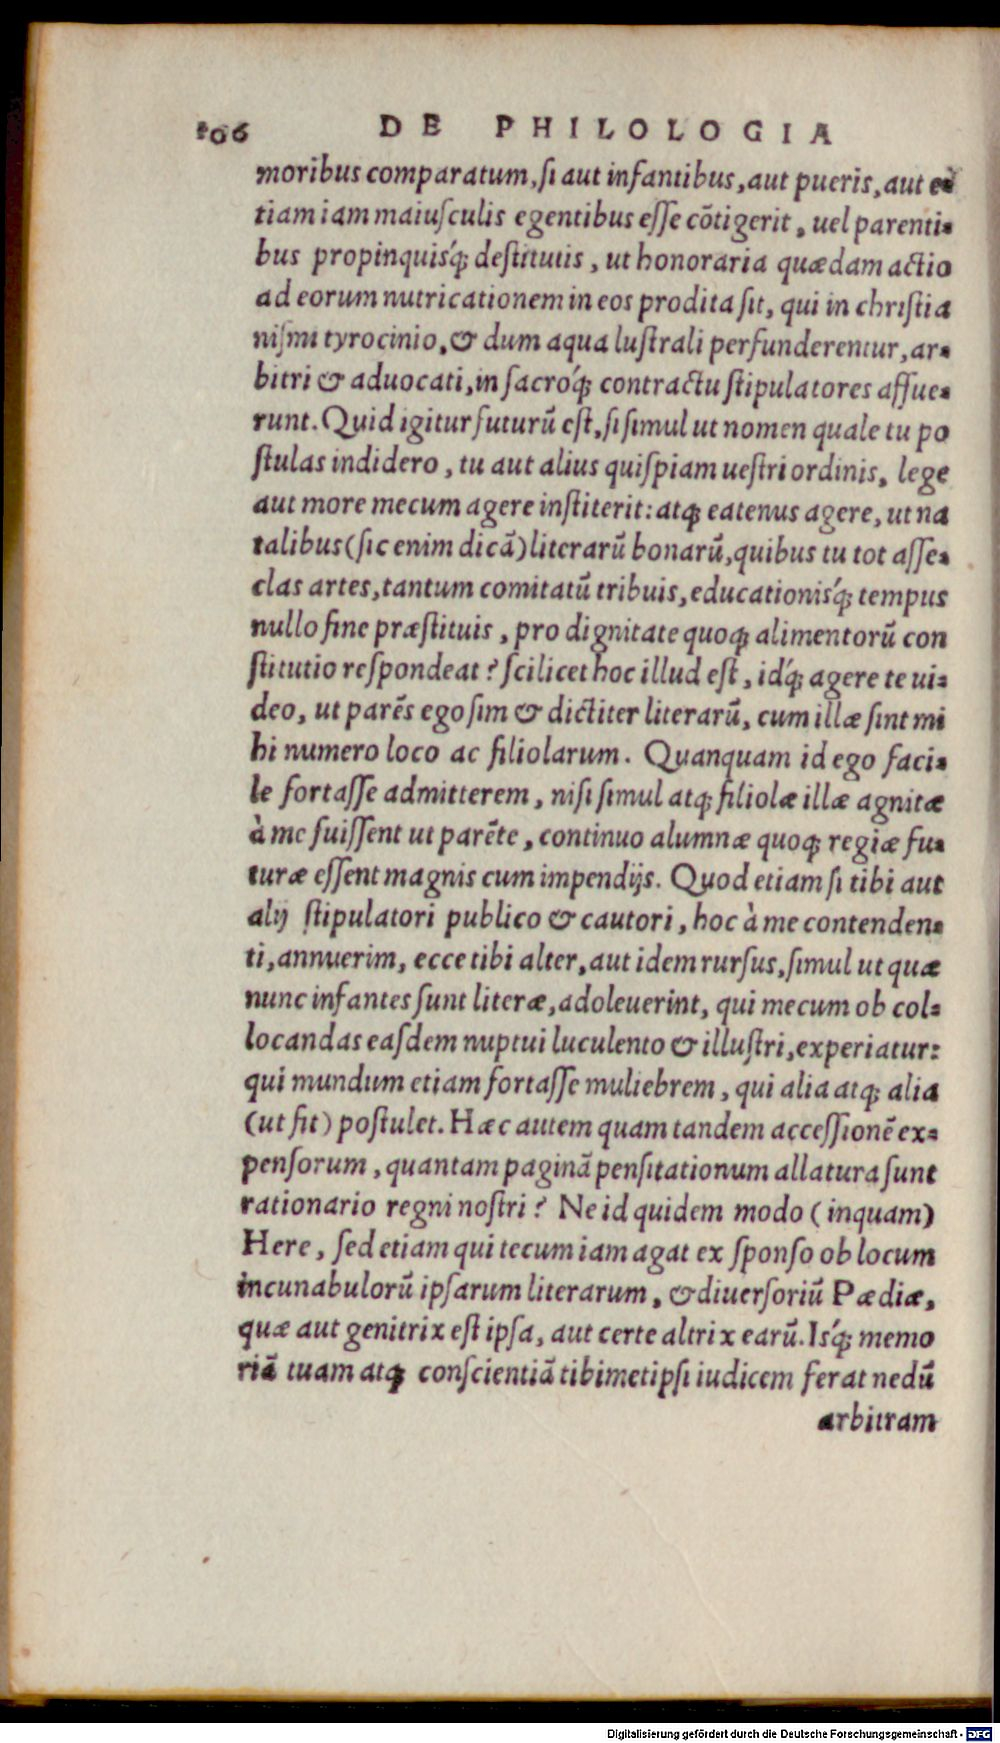 106 DE PHILOLOGIA
moribus comparatum, ſi aut infantibus, aut pueris, aut e=
tiam iam maiuſculis egentibus eſſe cõtigerit, uel parenti=
bus propinquisq́; deſtitutis, ut honoraria quædam actio
ad eorum nutricationem in eos prodita ſit, qui in chriſtia
niſmi tyrocinio, & dum aqua luſtrali perfunderentur, ar=
bitri & aduocati, in ſacroq́; contractu ſtipulatores affue=
runt. Quid igitur futurũ eſt, ſi ſimul ut nomen quale tu po
ſtulas indidero, tu aut alius quiſpiam ueſtri ordinis, lege
aut more mecum agere inſtiterit: atq; eatenus agere, ut na
talibus (ſic enim dicã) literarũ bonarũ, quibus tu tot aſſe=
clas artes, tantum comitatũ tribuis, educationisq́; tempus
nullo fine præſtituis, pro dignitate quoq; alimentorũ con
ſtitutio reſpondeat? ſcilicet hoc illud eſt, idq́; agere te ui=
deo, ut parẽs ego ſim & dictiter literarũ, cum illæ ſint mi
hi numero loco ac filiolarum. Quanquam id ego faci=
le fortaſſe admitterem, niſi ſimul atq; filiolæ illæ agnitæ
à me fuiſſent ut parẽte, continuo alumnæ quoq; regiæ fu=
turæ eſſent magnis cum impendijs. Quod etiam ſi tibi aut
alij ſtipulatori publico & cautori, hoc à me contenden=
ti, annuerim, ecce tibi alter, aut idem rurſus, ſimul ut quæ
nunc infantes ſunt literæ, adoleuerint, qui mecum ob col=
locandas eaſdem nuptui luculento & illuſtri, experiatur:
qui mundum etiam fortaſſe muliebrem, qui alia atq; alia
(ut fit) poſtulet. Hæc autem quam tandem acceſſionẽ ex=
penſorum, quantam paginã penſitationum allatura ſunt
rationario regni noſtri? Ne id quidem modo (inquam)
Here, ſed etiam qui tecum iam agat ex ſponſo ob locum
incunabulorũ ipſarum literarum, & diuerſoriũ Pædiæ,
quæ aut genitrix eſt ipſa, aut certe altrix earũ. Isq́; memo
riã tuam atq; conſcientiã tibimetipſi iudicem ferat nedũ
arbitram
Digitalisierung gefördert durch die Deutsche Forschungsgemeinschaft - DFG